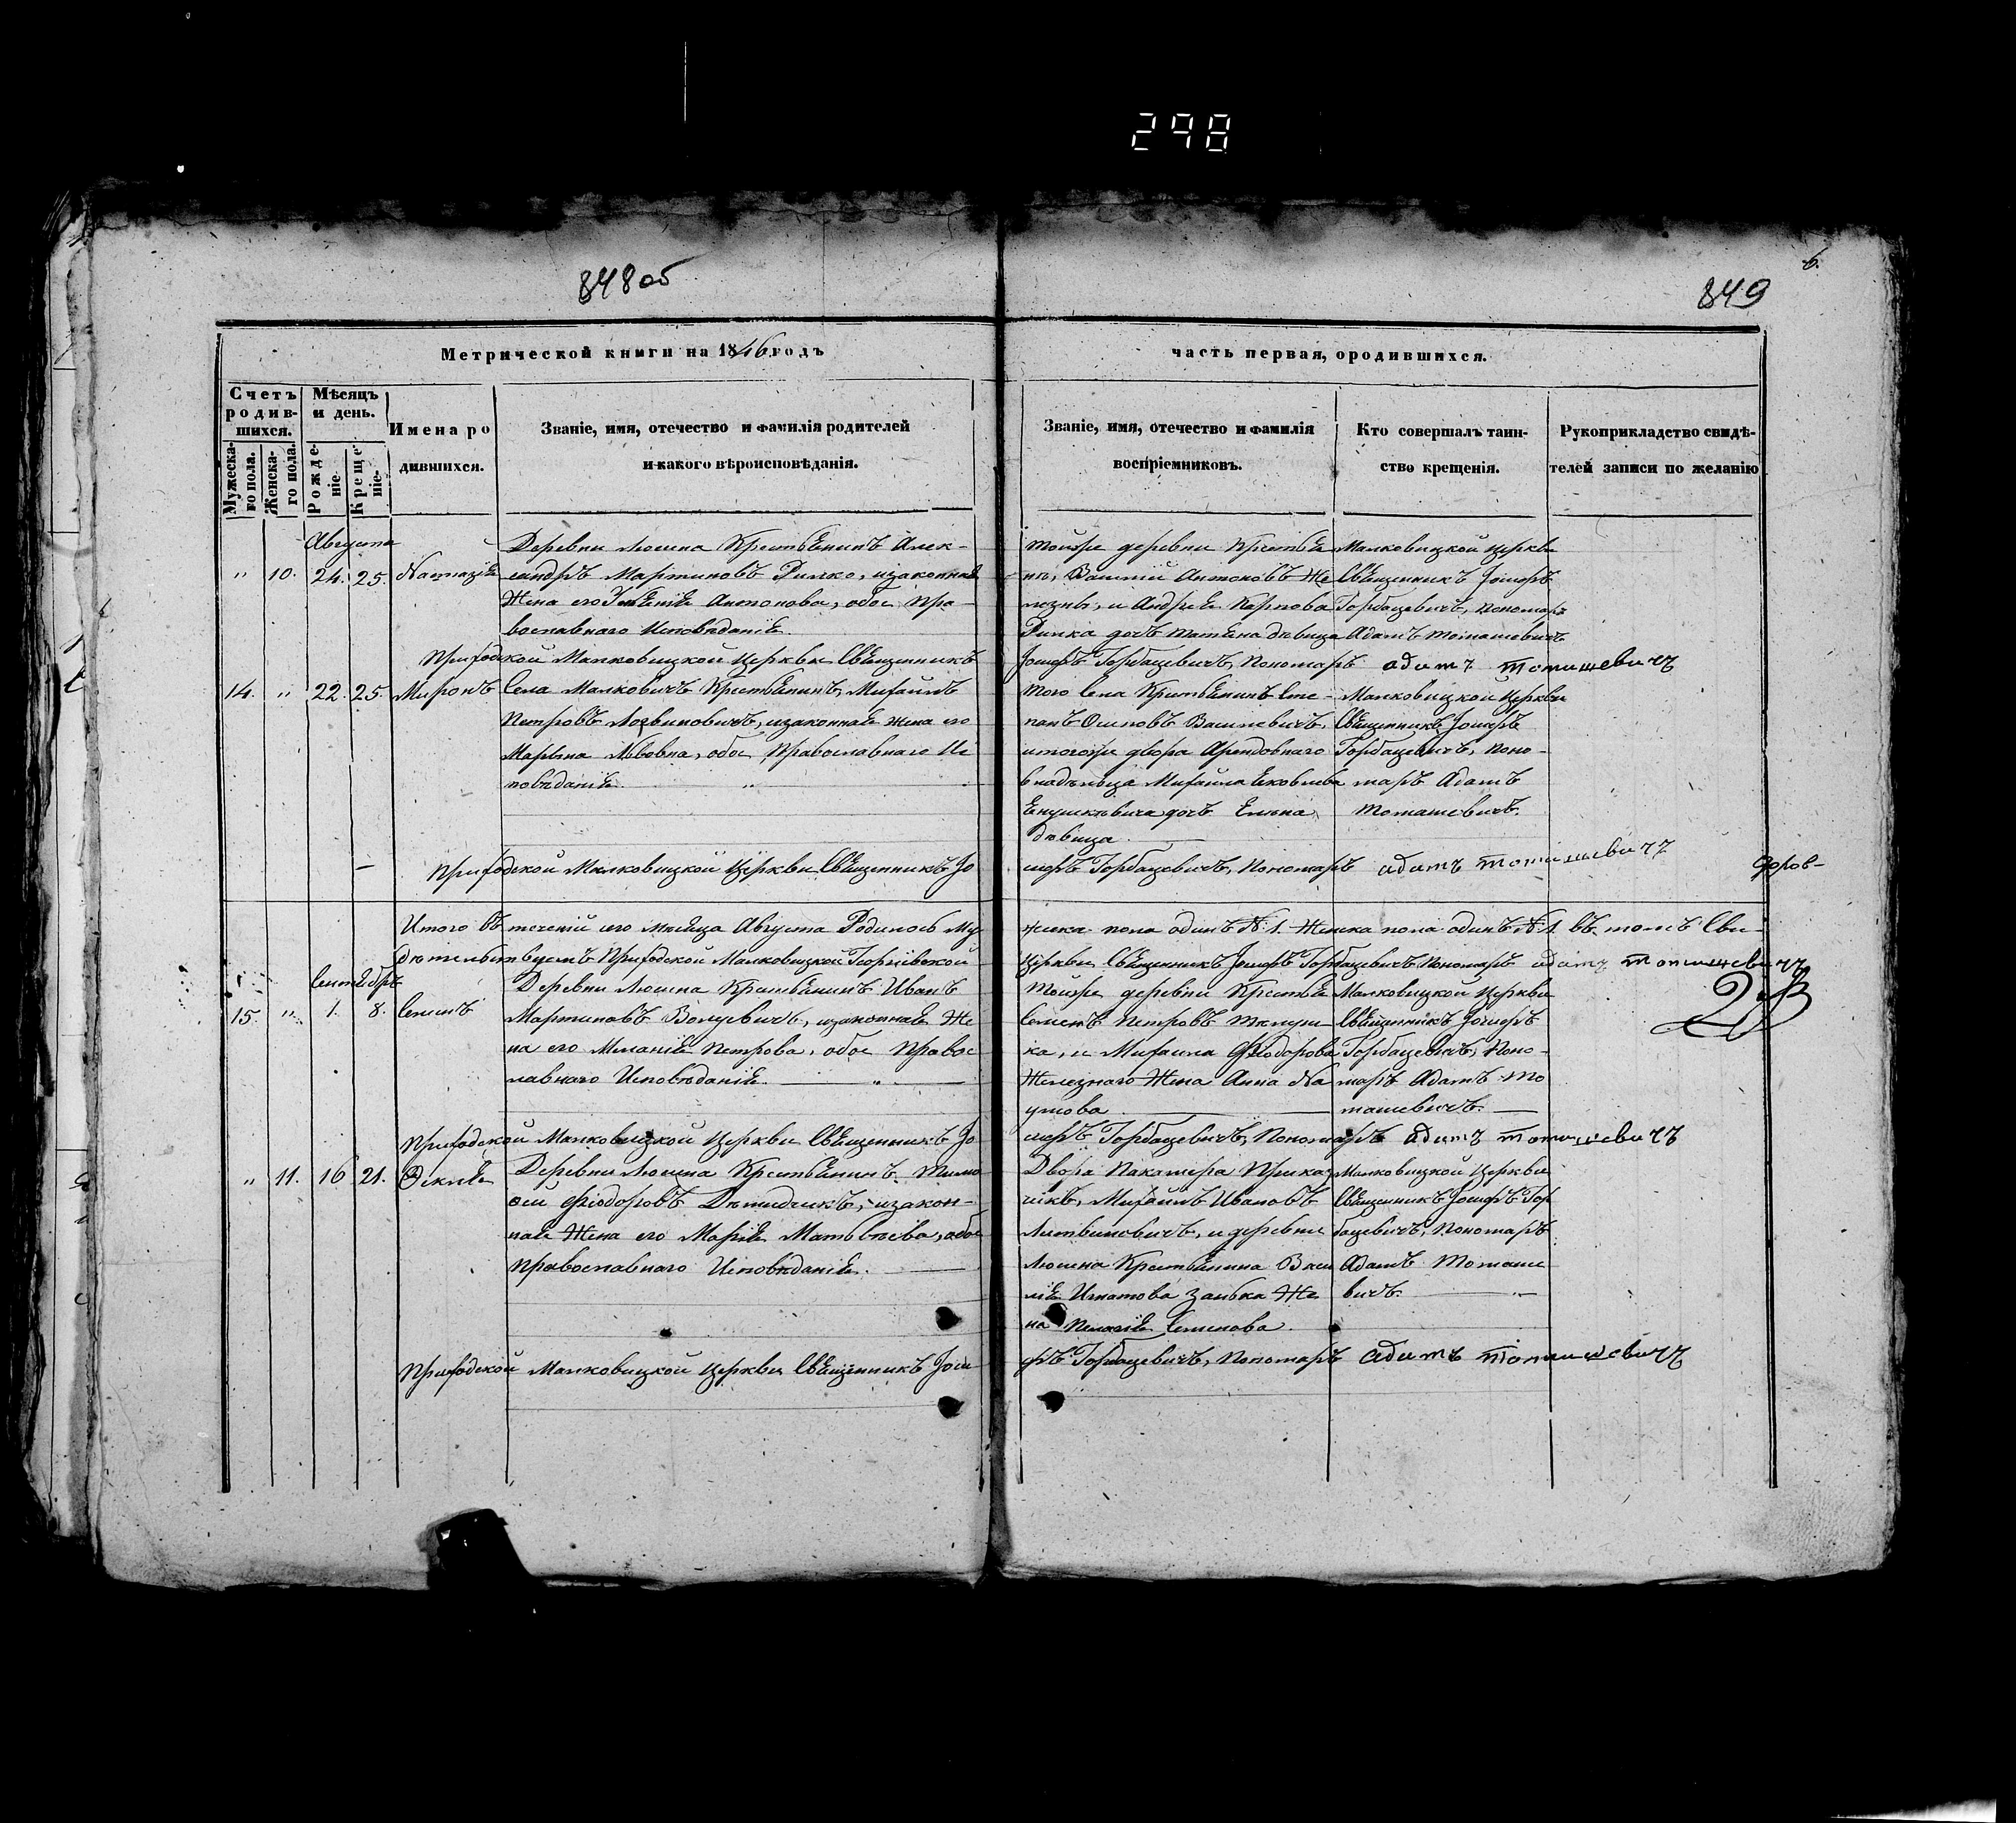 298
848об
849
6.
Метрической книги на 1846 годъ
часть первая, ородившихся.
Счетъ родив-шихся.
Мѣсяцъ и день.
Мужеска-го пола.
Женска-го пола.
Рожде-ніе.
Креще-ніе.
Имена ро
дившихся.
Званіе, имя, отечество и фамилія родителей
и какого вѣроисповѣданія.
Званіе, имя, отечество и фамилія
воспріемниковъ.
Кто совершалъ таин-
ство крещенія.
Рукоприкладство свидѣ-
телей записи по желанію
Августа
" 10. 24. 25. Наталіѣ
Деревни Люсина Крестьѣнинъ Алек-
сандръ Мартиновъ Римко, изаконнаѣ
Жена его Антонова, обое Пра-
вославнаго Исповѣданіѣ.
Тойже деревни Крестьѣ
нъ, Василій Антоновъ Же
лезнъ, и Андреѣ Карпова
Римка дочъ Татьѣна дѣвица
Малковицкой Церкви
Свѣщенникъ Іосифъ
Горбацевичъ, Пономаръ
Адамъ Томашевичъ
Приходской Малковицкой Церкви Свѣщенникъ Іосифъ Горбацевичъ, Пономаръ адамъ томашевичъ
14. " 22. 25. Миронъ
Села Малковичъ Крестьѣнинъ Михаилъ
Петровъ Логвиновичъ, изаконнаѣ жена его
Марьѣна Львовна, обое Православнаго Ис
повѣданіѣ
Того Села Крестьѣнинъ Сте-
панъ Осиповъ Василевичъ,
итогоже двора Арендовнаго
владѣльца Михаила Ековлева
дочъ Елена,
дѣвица
Малковицкой Церкви
Свѣщенникъ Іосифъ
Горбацевичъ, Поно-
маръ Адамъ
Томашевичъ.
Приходской Малковицкой Церкви Свѣщенникъ Іо сифъ Горбацевичъ, Пономаръ адамъ томашевичъ
Итого въ теченій сего мѣсяца Августа Родилось Му жеска пола одинъ № 1. Женска пола одинъ № 1 въ томъ Сви-
дѣтельствуемъ Приходской Малковицкой Георгіевской Церкви Свѣщенникъ Іосифъ Горбацевичъ Пономаръ адамъ томашевичъ
Сентѣбръ
15. " 1. 8. Семенъ
Деревни Люсина Крестьѣнинъ Иванъ
Мартиновъ Волуевичъ, изаконнаѣ Же
на его Меланіѣ Петрова, обое Правос
лавнаго Исповѣданіѣ.
Тойже деревни Крестьѣ
Семенъ Петровъ
ка, и Михаила Фіодорова
Железнаго Жена Анна На
умова
Малковицкой Церкви
Свѣщенникъ Іосифъ
Горбацевичъ, Поно-
маръ Адамъ То
машевичъ.
Приходской Малковицкой Церкви Свѣщенникъ Іо сифъ Горбацевичъ, Пономаръ адамъ томашевичъ
" 11. 16 21. Ѳекліѣ
Деревни Люсина Крестьѣнинъ Тимо
ѳей Фіодоровъ Дѣмидчикъ, изакон-
наѣ Жена его Маріѣ Матьвѣева, обое
Православнаго Исповѣданіѣ.
Двора Приказ
чикъ, Михаилъ Ивановъ
Литвиновичъ, и деревни
Люсина Крестьѣнина Васи
ліѣ Игнатова Же
на Пелагіѣ Семенова.
Малковицкой Церкви
Свѣщенникъ Іосифъ Гор
бацевичъ, Пономаръ
Адамъ Томаше
вичъ.
Приходской Малковицкой Церкви Свѣщенникъ Іоси фъ Горбацевичъ, Пономаръ адамъ томашевичъ